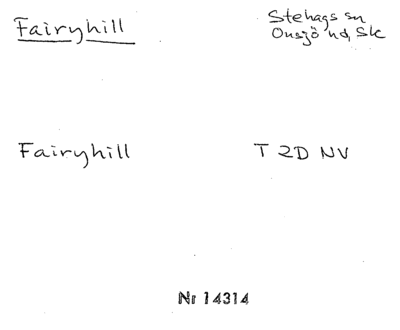 Fairyhill
Stehags sn
Onsjö hd, Sk
Fairyhill
T 2D NV
Nr 14314